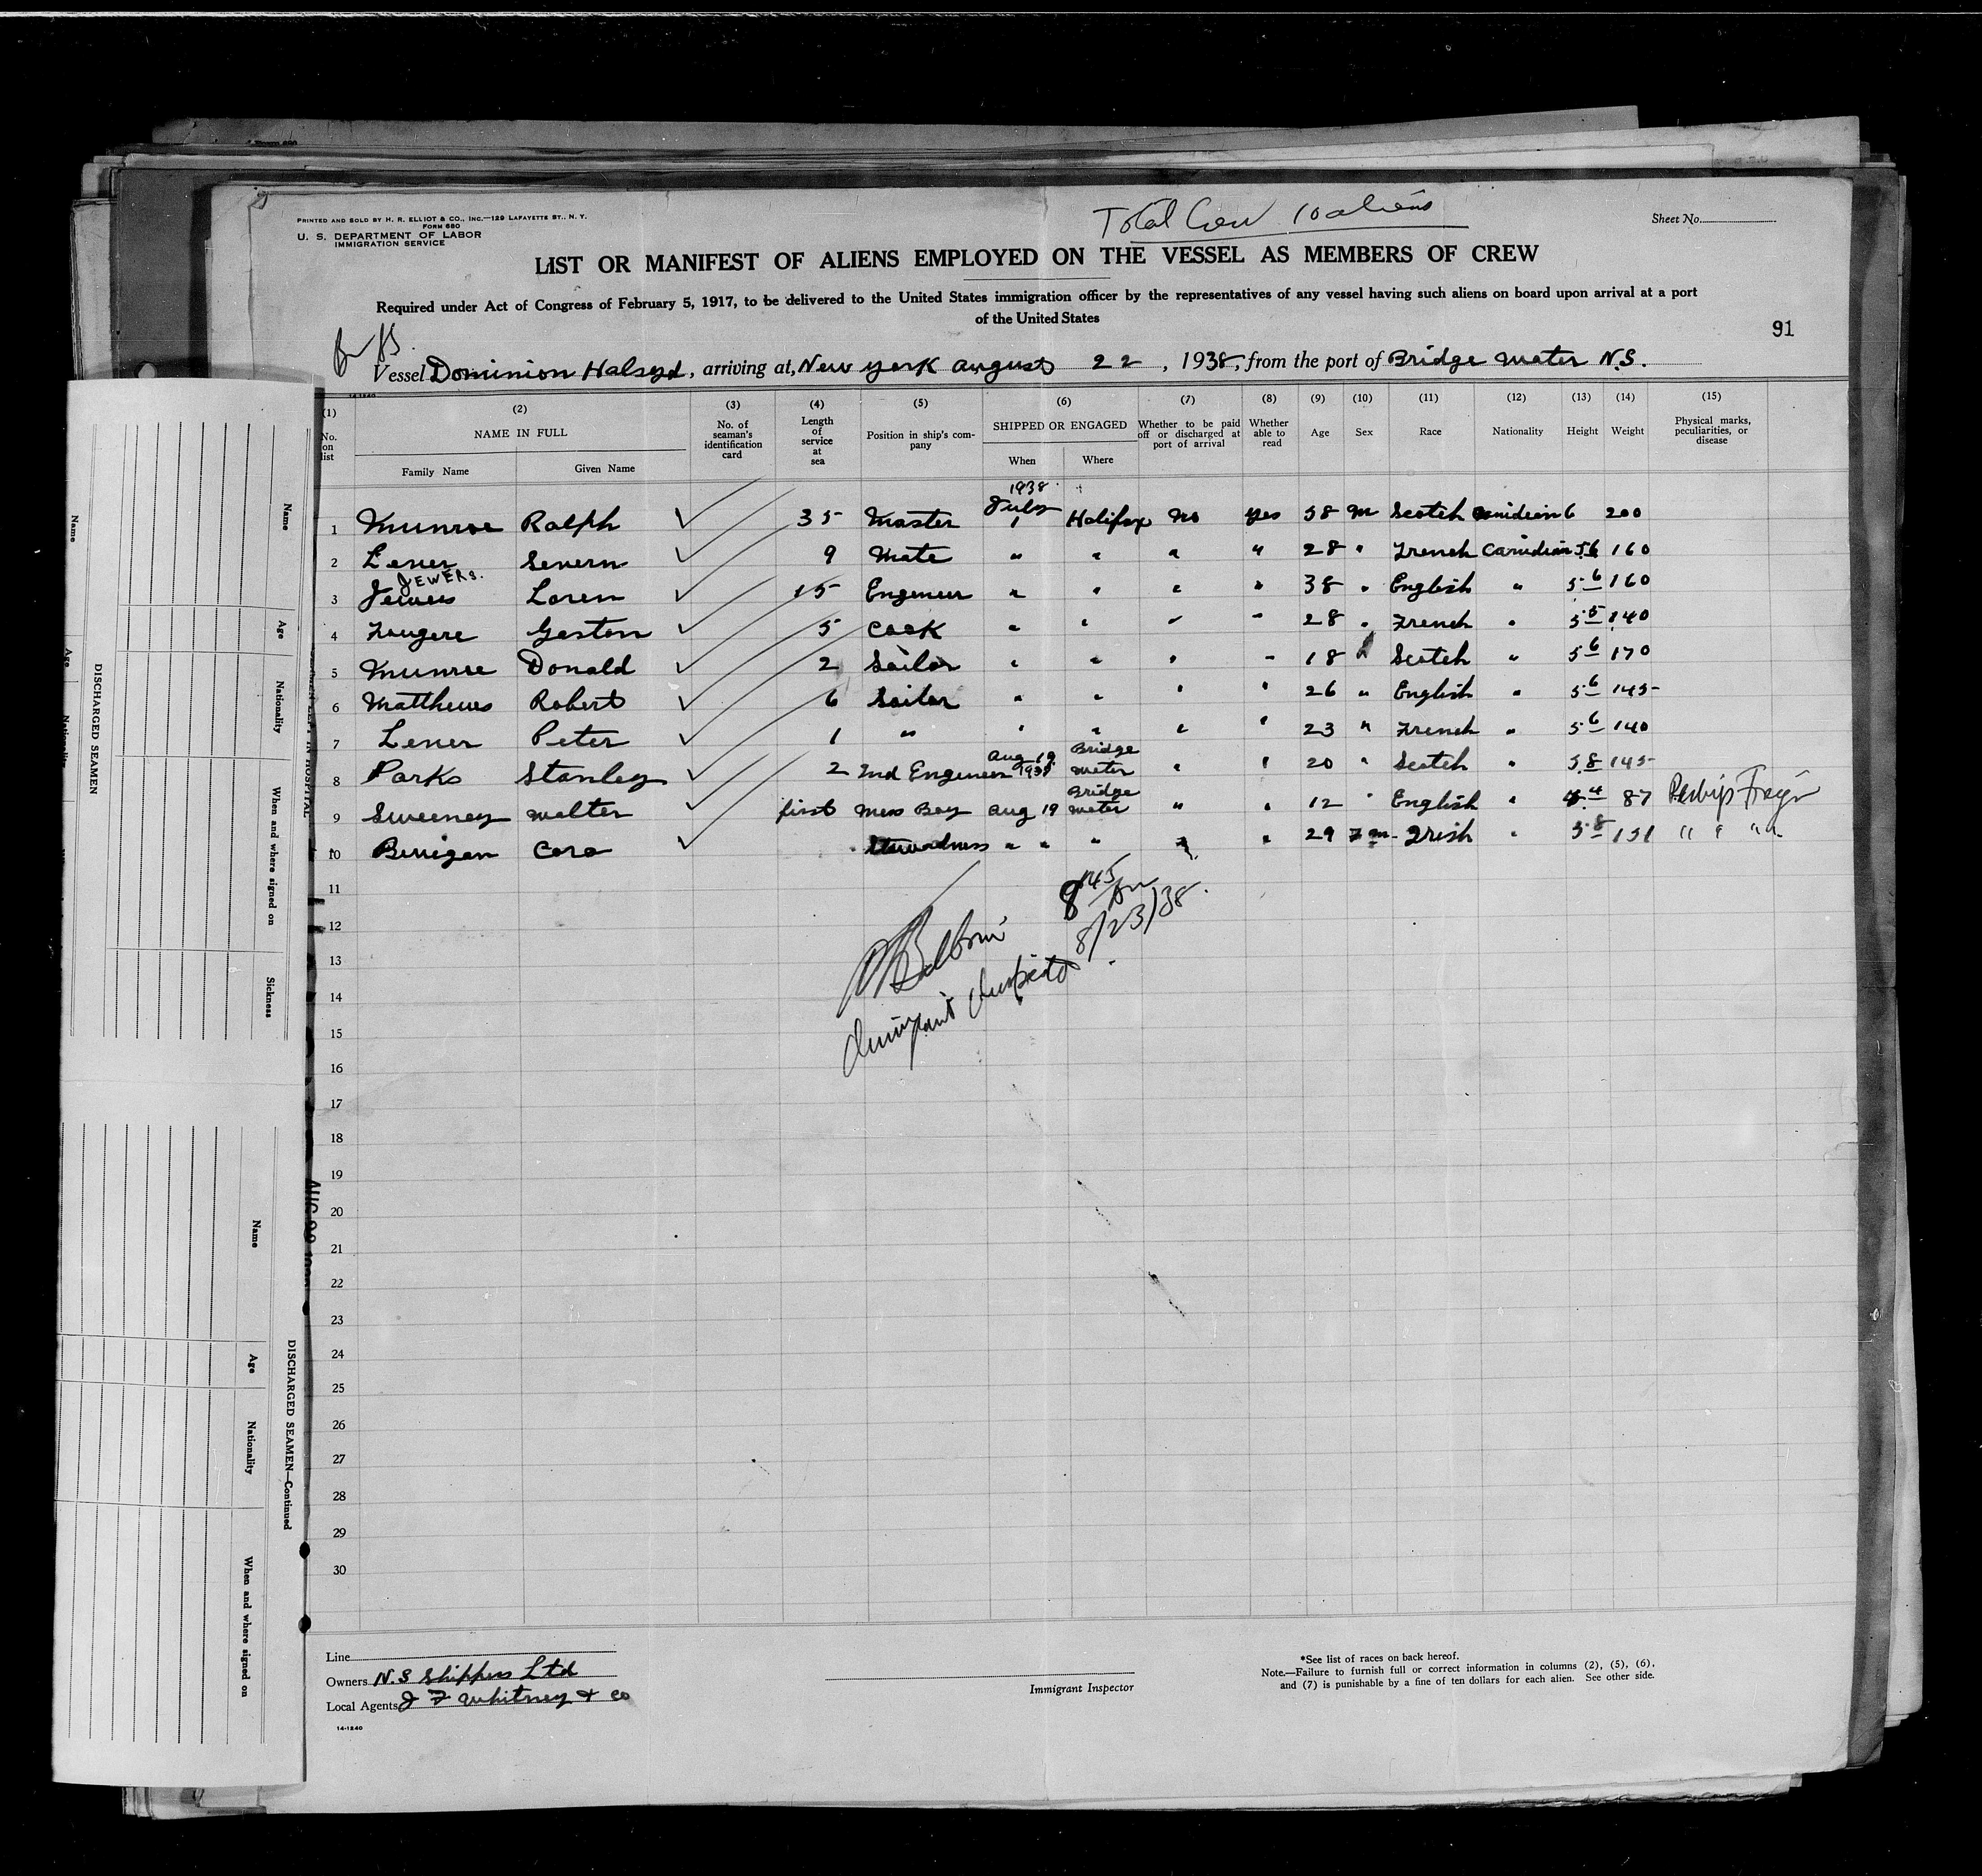 PRINTED AND SOLD BY H. R. ELLIOT & CO., INC.—129 LAFAYETTE ST., N. Y.
FORM 680
U. S. DEPARTMENT OF LABOR
IMMIGRATION SERVICE
Total Crew 10 aliens
Sheet No.
LIST OR MANIFEST OF ALIENS EMPLOYED ON THE VESSEL AS MEMBERS OF CREW
Required under Act of Congress of February 5, 1917, to be delivered to the United States immigration officer by the representatives of any vessel having such aliens on board upon arrival at a port
of the United States
91
Vessel Dominion Halsyd, arriving at, New York August 22, 1938, from the port of Bridge Water N.S.
14-1240
(1) (2) (3) (4) (5) (6) (7) (8) (9) (10) (11) (12) (13) (14) (15)
No. on list
NAME IN FULL
Family Name Given Name
No. of seaman's identification card
Length of service at sea
Position in ship's company
SHIPPED OR ENGAGED
When Where
Whether to be paid off or discharged at port of arrival
Whether able to read
Age Sex Race Nationality Height Weight
Physical marks, peculiarities, or disease
1938
1 Munroe Ralph 35 Master July 1 Halifax No yes 58 M Scotch Canidian 6 200
2 Lener Severn 9 Mate " " " " 28 " French Canidian 5.6 160
JEWERS.
3 Jewers Loren 15 Engineer " " " " 38 " English " 5-6 160
4 Fougere Gaston 5 Cook " " " " 28 " French " 5-5 140
5 Munroe Donald 2 Sailor " " " " 18 " Scotch " 5-6 170
6 Matthews Robert 6 Sailor " " " " 26 " English " 5-6 145
7 Lener Peter 1 " " " " " 23 " French " 5-6 140
8 Parks Stanley 2 2nd Engineer Aug 19 1938 Bridge Water " " 20 " Scotch " 5.8 145
9 Sweeney Walter first Mess Boy Aug 19 Bridge Water " " 12 " English " 4.4 87
10 Cora Stewardness " " " " " 29 Fm- Irish " 5-8 131 " " " "
11
12
13
14
15
16
17
18
19
20
21
22
23
24
25
26
27
28
29
30
8 45 AM
8/23/38.
Immigrant Inspector
Line
Owners N.S Shippers Ltd
Local Agents J F Whitney & Co
14-1240
Immigrant Inspector
*See list of races on back hereof.
Note.—Failure to furnish full or correct information in columns (2), (5), (6),
and (7) is punishable by a fine of ten dollars for each alien. See other side.
DISCHARGED SEAMEN
Name
Age
Nationality
When and where signed on
Sickness
Name
Age
DISCHARGED SEAMEN—Continued
Name
Age
Nationality
When and where signed on